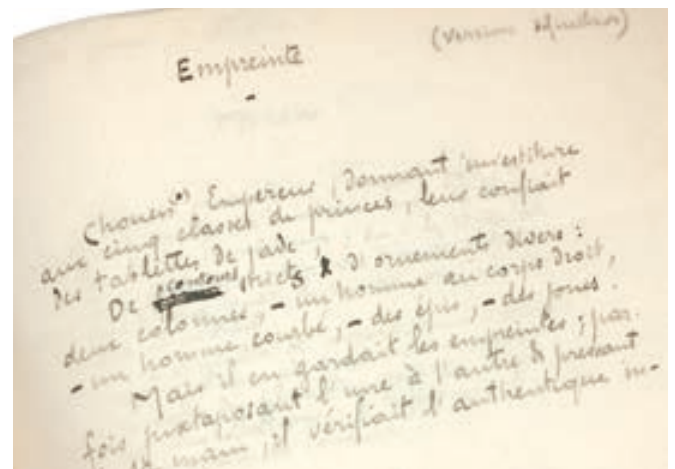 Empreinte
(Version
Chouen, Empereur, donnant investiture
aux cinq classes de princes, leur confiait
des tablettes de jade
De contours stricts & d'ornements divers :
deux colonnes, – un homme au corps droit,
– un homme courbé, – des épis, – des joncs.
Mais il en gardait les empreintes ; par-
fois juxtaposant l'une à l'autre & pressant
main, il vérifiait l'authentique in-